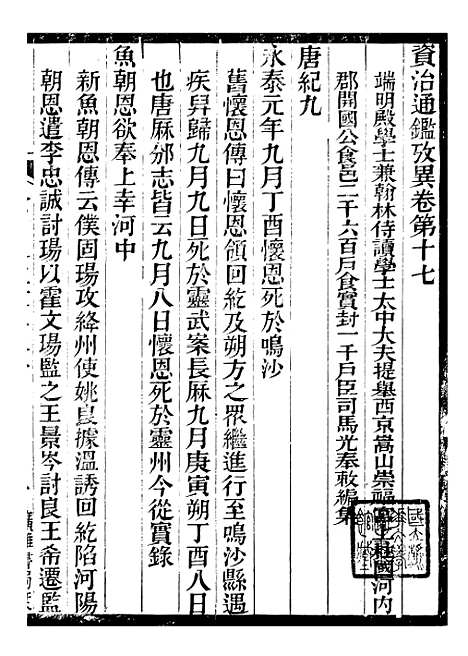 資治通鑑攷異卷第十七
端明殿學士兼翰林侍讀學士太中大夫提舉西京嵩山崇福宮上柱國河内
郡開國公食邑二千六百戶食實封一千戶臣司馬光奉敕編集
唐紀九
永泰元年九月丁酉懷恩死於鳴沙
舊懷恩傳曰懷恩領回紇及朔方之眾繼進行至鳴沙縣遇
疾舁歸九月九日死於靈武案長厤九月庚寅朔丁酉八日
也唐厤邠志皆云九月八日懷恩死於靈州今從實錄
魚朝恩欲奉上幸河中
新魚朝恩傳云僕固瑒攻絳州使姚良據溫誘回紇陷河陽
朝恩遣李忠誠討瑒以霍文瑒監之王景岑討良王希遷監
廣雅書局栞